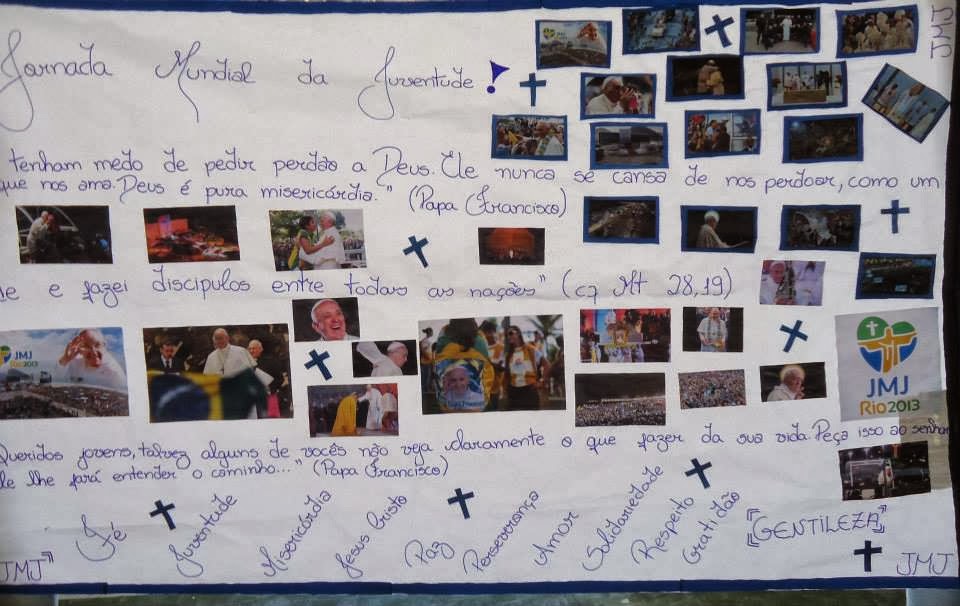 Jornada Mundial da Juventude!
JMJ
tenham medo de pedir perdão a Deus. Ele nunca se cansa de nos perdoar, como um
que nos ama. Deus é pura misericórdia." (Papa Francisco)
Ide e fazei discipulos entre todas as nações" (cf Mt 28,19)
JMJ
Rio2013
JMJ
Rio2013
Queridos jovens, talvez alguns de vocês não veja claramente o que fazer da sua vida. Peça isso ao senhor
ele lhe fará entender o caminho..." (Papa Francisco)
Fé
Juventude
Misericórdia
Jesus Cristo
Paz
Perseverança
Amor
Solidariedade
Respeito
Gratidão
"GENTILEZA"
JMJ"
JMJ